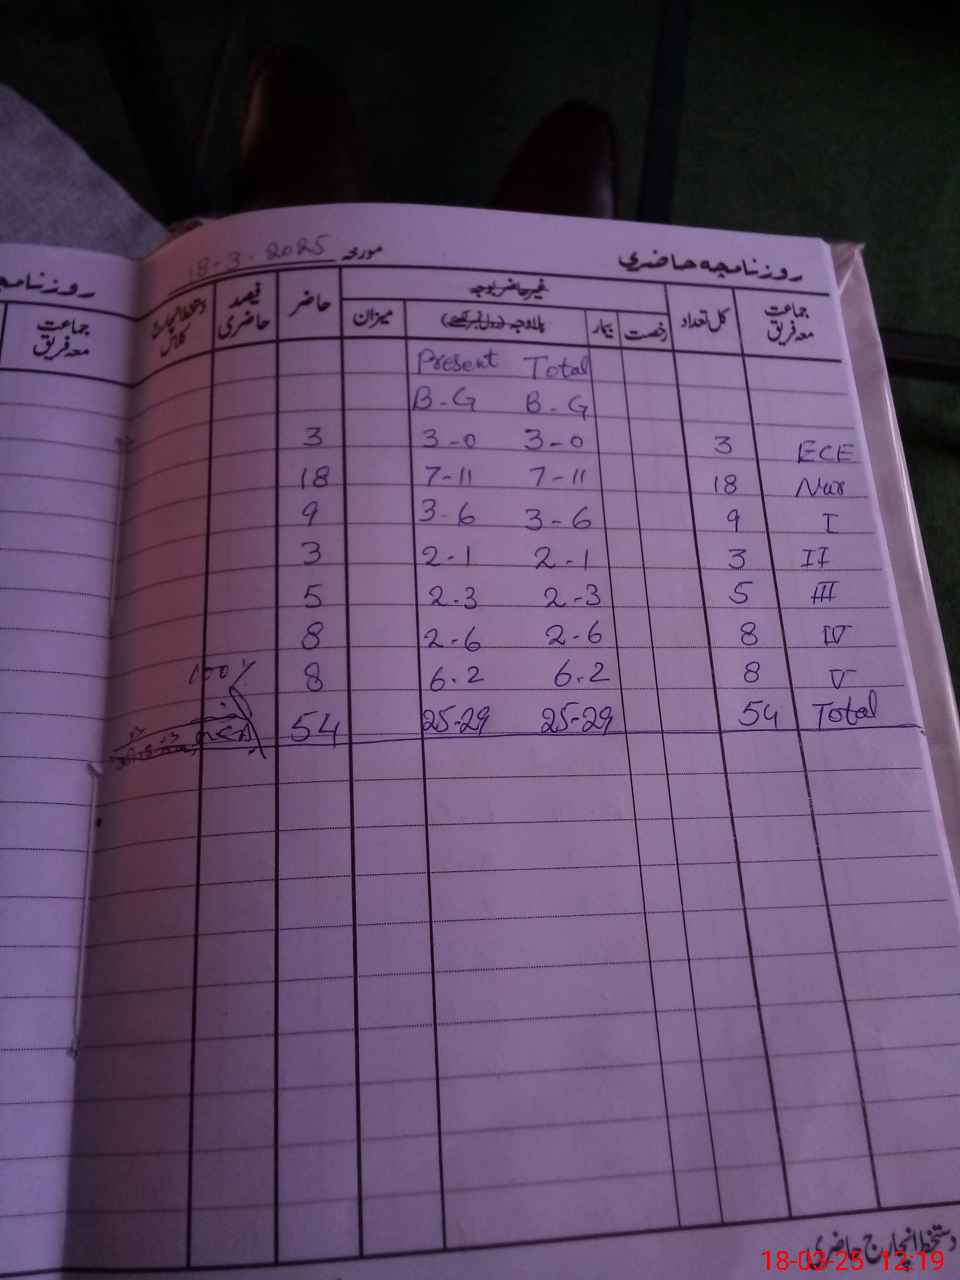 روزنامچہ حاضری
مورخہ 18-3-2025
جماعت معہ فریق کل تعداد غیر حاضر بوجہ حاضر فیصد حاضری دستخط انچارج کلاس
رخصت بیمار بلاوجہ (رول نمبر لکھیئے) میزان
Present Total
B-G B-G
ECE 3 3-0 3-0 3
Nur 18 7-11 7-11 18
I 9 3-6 3-6 9
II 3 2-1 2-1 3
III 5 2-3 2-3 5
IV 8 2-6 2-6 8
V 8 6.2 6.2 8 100%
Total 54 25-29 25-29 54
دستخط انچارج حاضری
جماعت
معہ فریق
18-03-25 12:19